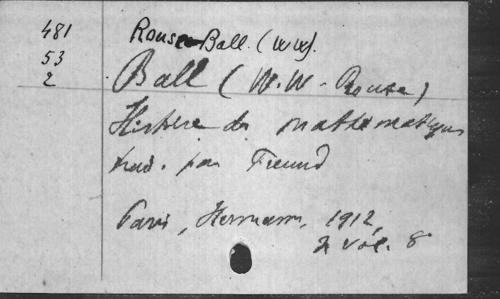 481
53
2
Rouse-Ball. (W W).
Ball (W.W. Rouse)
Histoire des mathématiques
trad. par Freund
Paris, Hermann, 1912,
2 vol. 8°